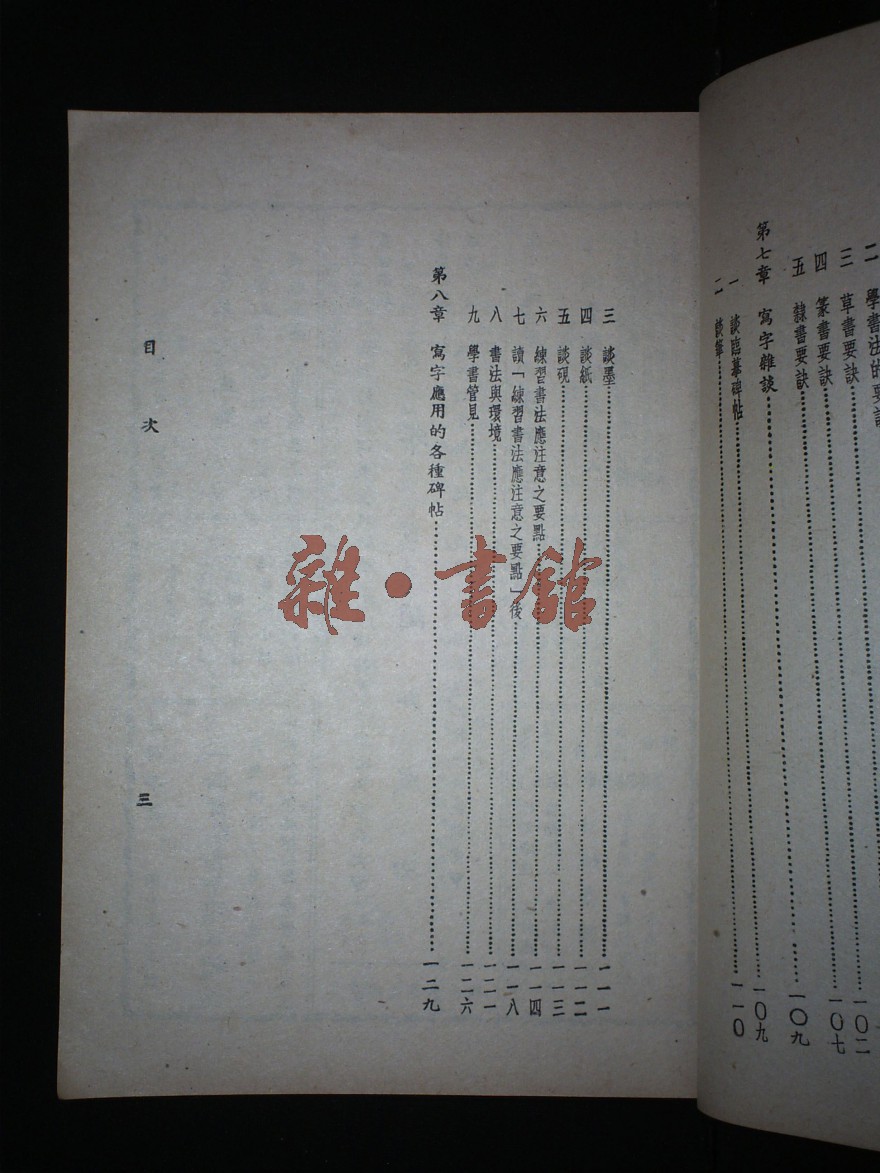 二 學書法的要訣
三 草書要訣……一〇二
四 篆書要訣……一〇七
五 隸書要訣……一〇九
第七章 寫字雜談……一〇九
一 談臨摹碑帖……一一〇
二 談筆……
三 談墨……一一一
四 談紙……一一二
五 談硯……一一三
六 練習書法應注意之要點……一一四
七 讀「練習書法應注意之要點」後……一一八
八 書法與環境……一二一
九 學書管見……一二六
第八章 寫字應用的各種碑帖……一二九
目次
三
雜·書館